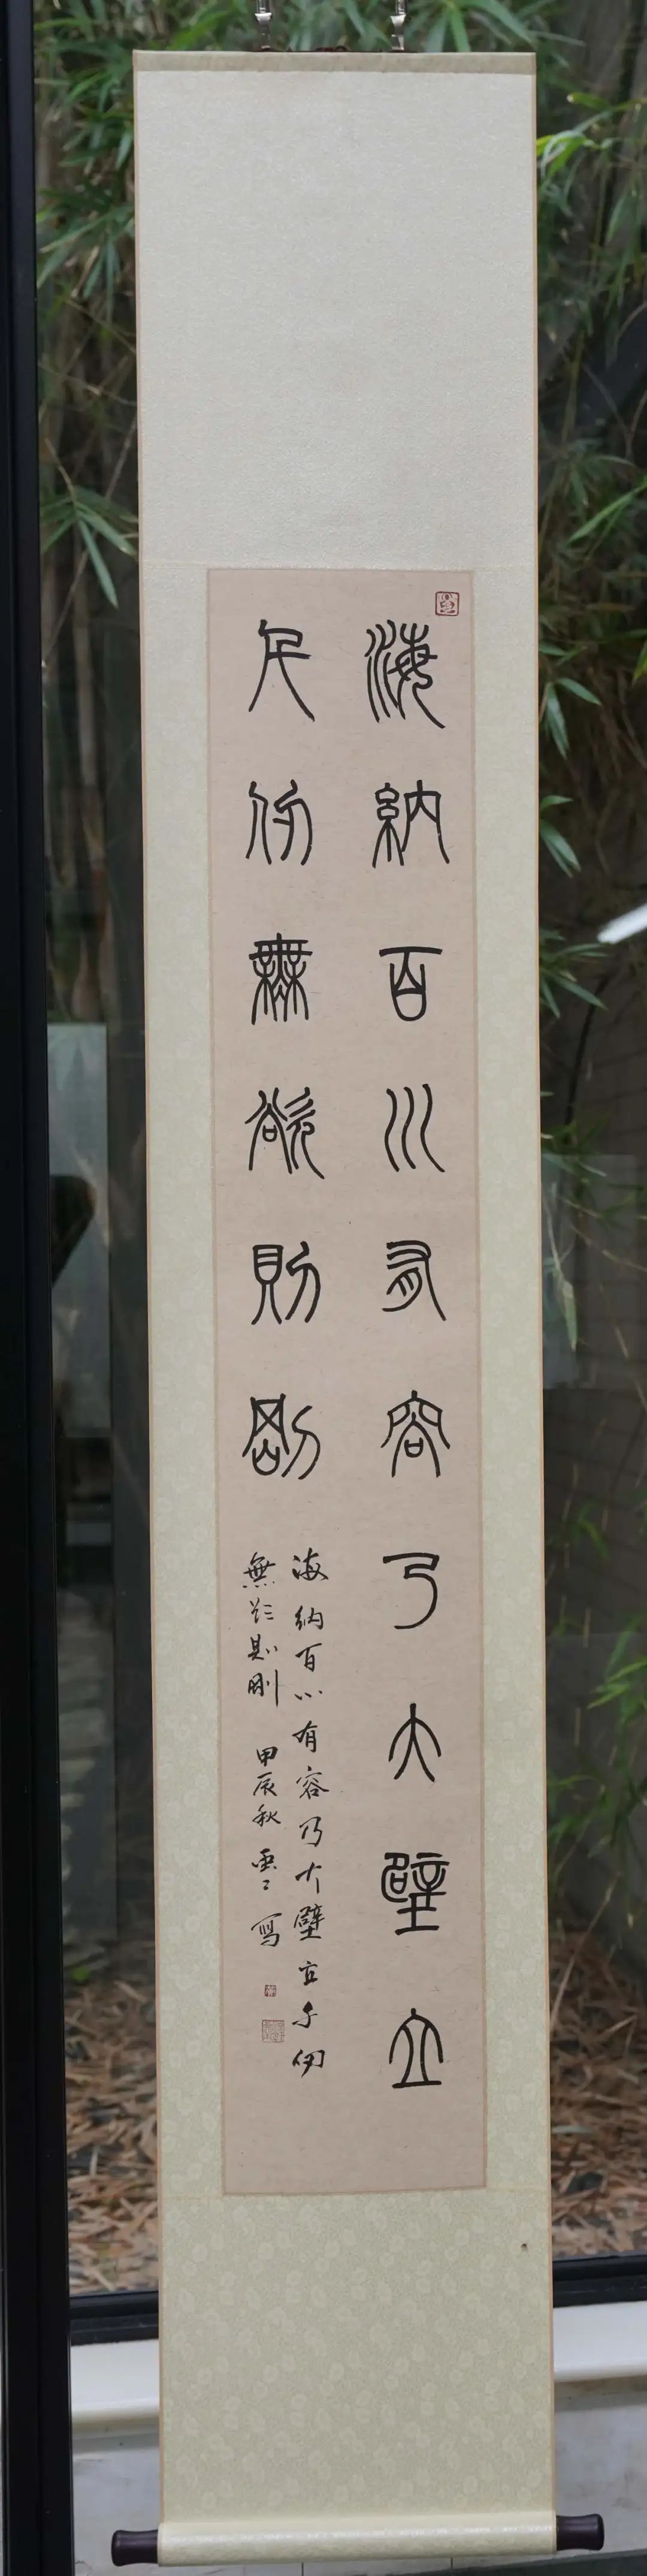 海納百川有容乃大壁立
千仞無欲則剛
海納百川有容乃大壁立千仞
無欲則剛 甲辰秋 雲〻寫